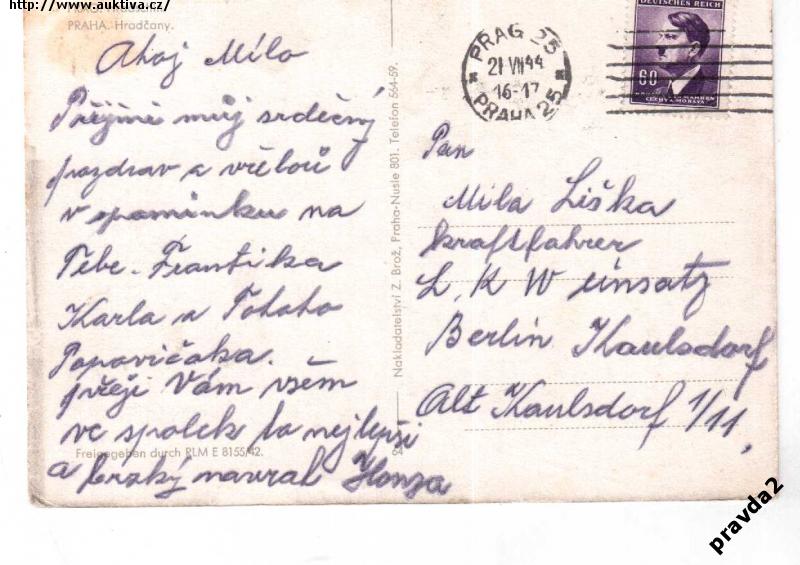 http://www.auktiva.cz/
PRAHA. Hradčany.
Ahoj Mílo
Přijmi můj srdečný
pozdrav a vřelou
v spomínku na
Tebe. Frantíka
Karla a Tohoho
Popovičáka.
přeji Vám všem
ve spolek to nejlepší
a brzký navrat Honza
Freigegeben durch RLM E 8155/42.
Nakladatelství Z. Brož, Praha-Nusle 801. Telefon 564-59.
PRAG 25
21 VII 44
16-17
PRAHA 25
DEUTSCHES REICH
60
BÖHMEN U. MÄHREN
ČECHY A MORAVA
Pan
Mila Liška
Kraftfahrer
L. K W einsatz
Berlin Kaulsdorf
Alt Kaulsdorf 1/11,
pravda2